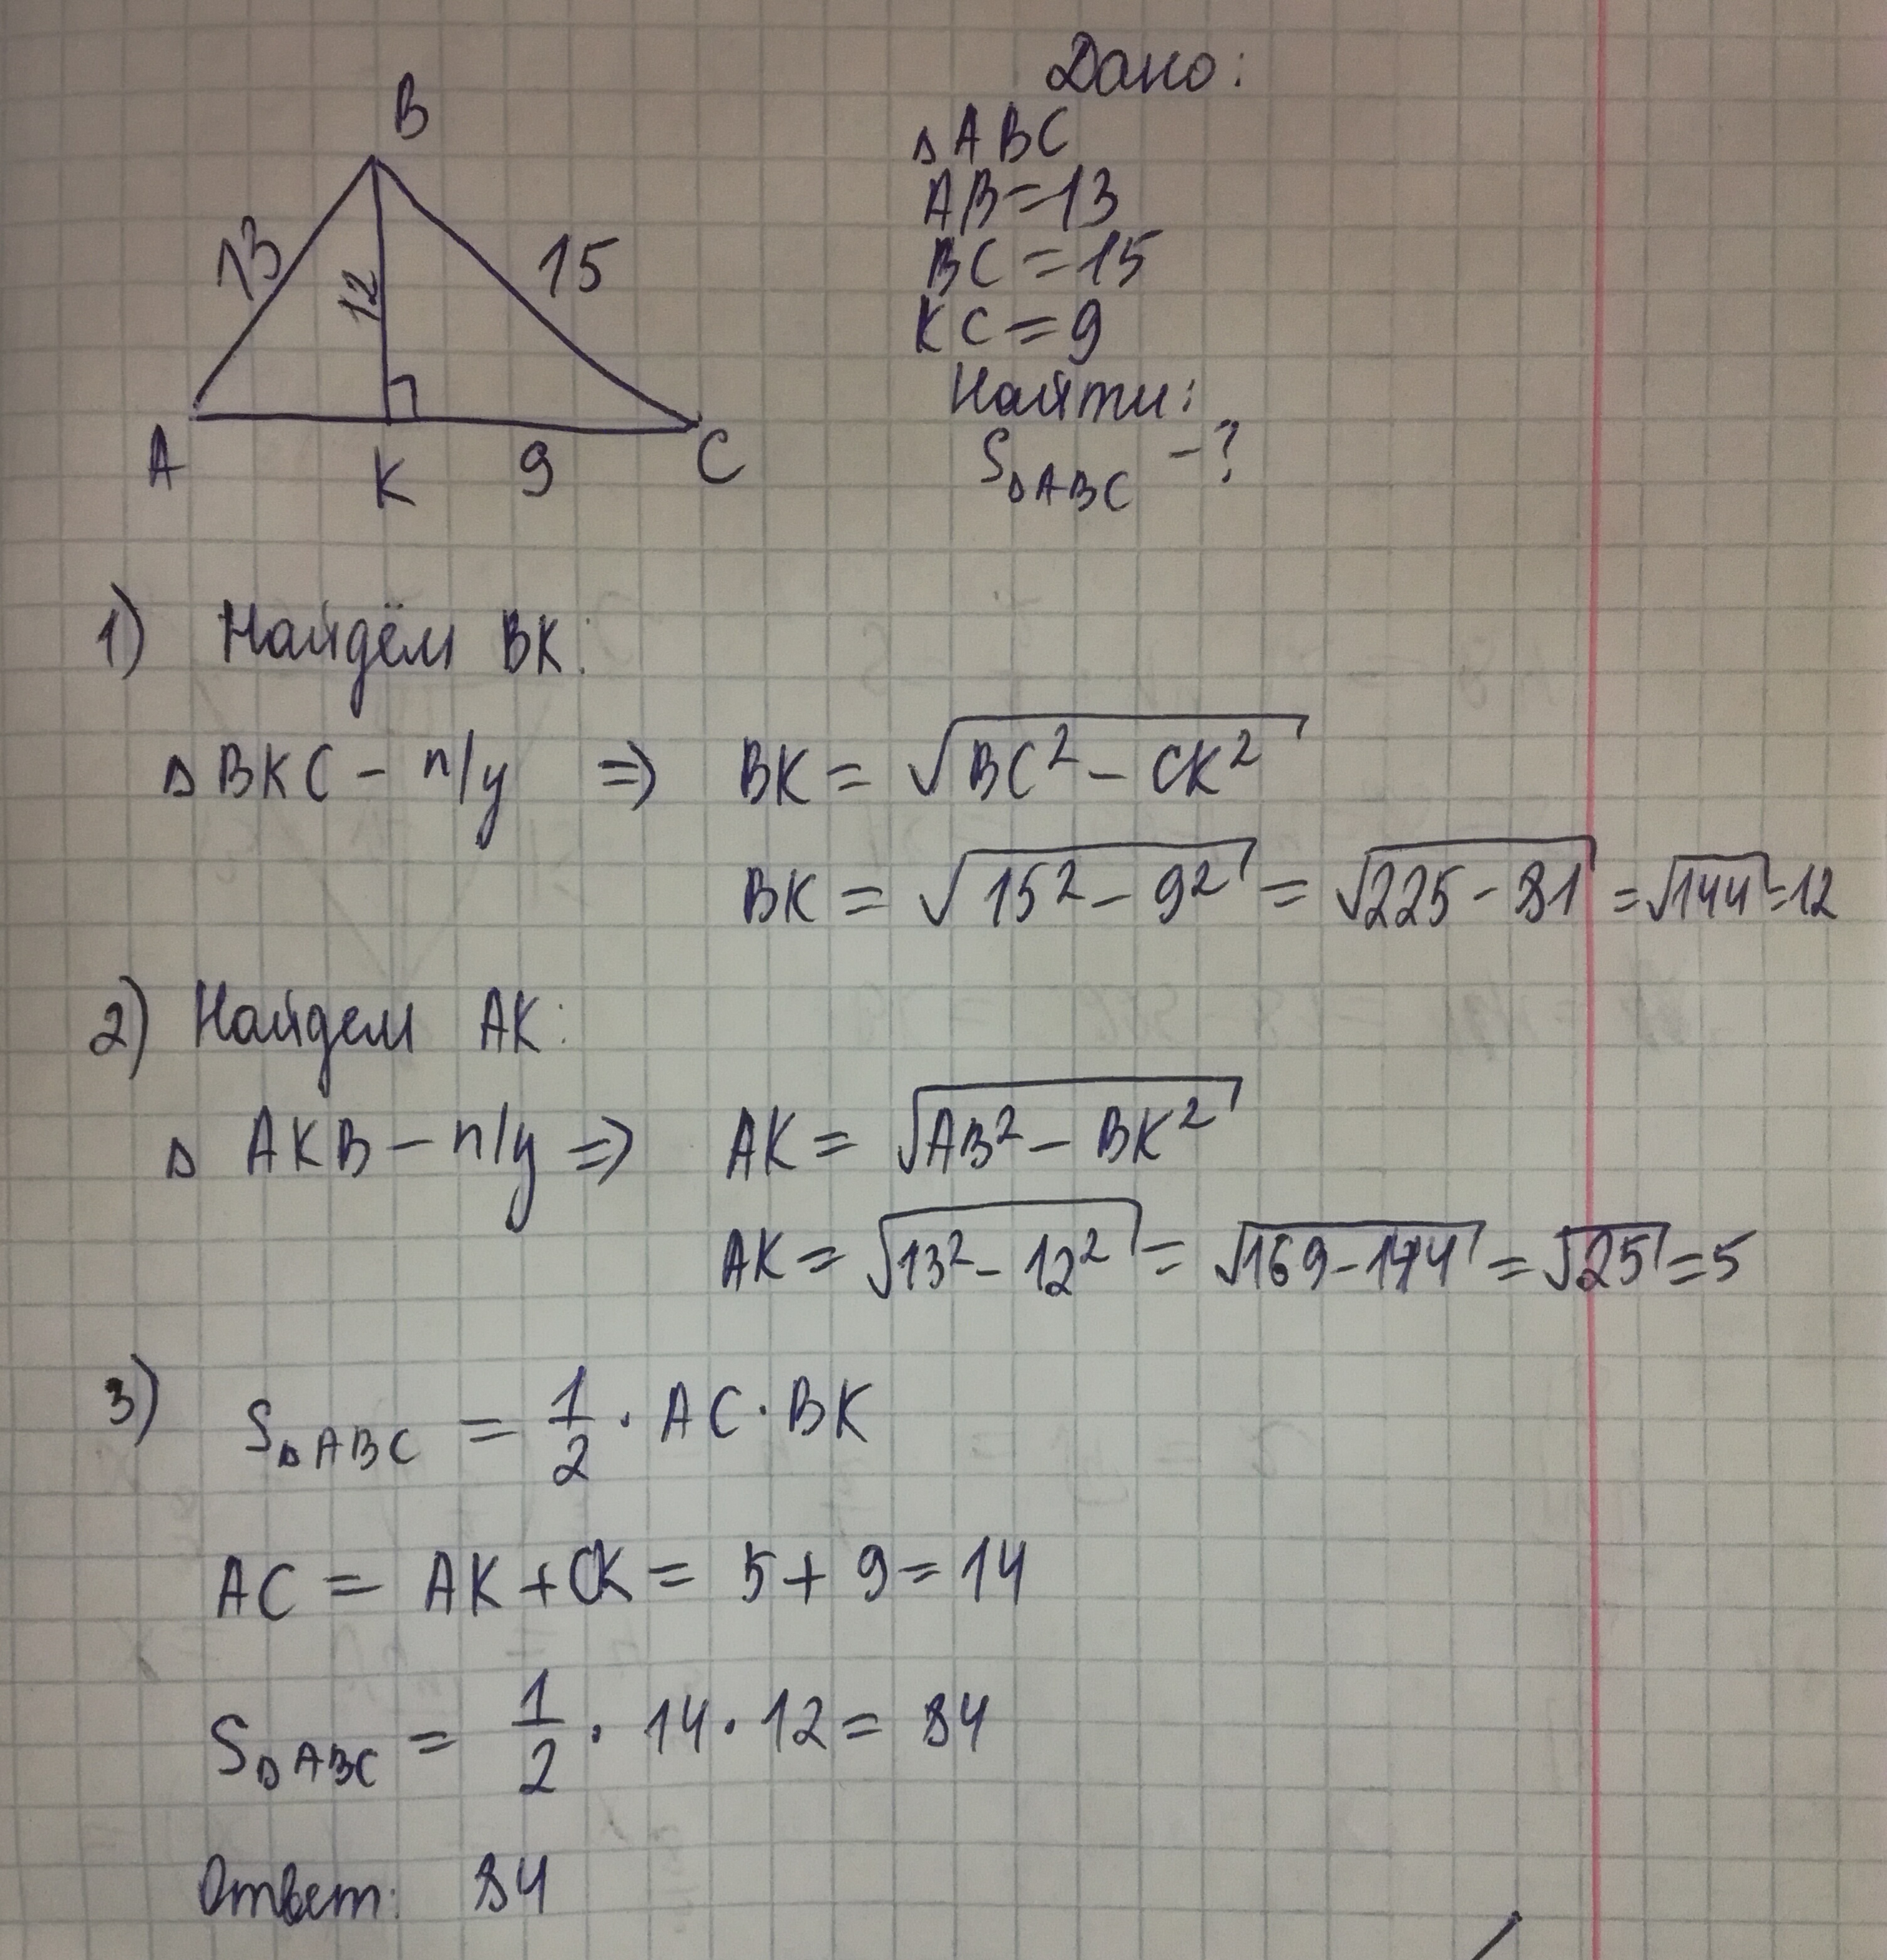 B
13
12
15
A
K
9
C
Дано:
△ABC
AB=13
BC=15
KC=9
Найти:
S△ABC -?
1) Найдём BK:
△BKC - п/у => BK = √BC² - CK²
BK = √15² - 9² = √225 - 81 = √144 = 12
2) Найдем AK:
△ AKB - п/у => AK = √AB² - BK²
AK = √13² - 12² = √169 - 144 = √25 = 5
3) S△ABC = 1/2 · AC · BK
AC = AK + CK = 5 + 9 = 14
S△ABC = 1/2 · 14 · 12 = 84
Ответ: 84